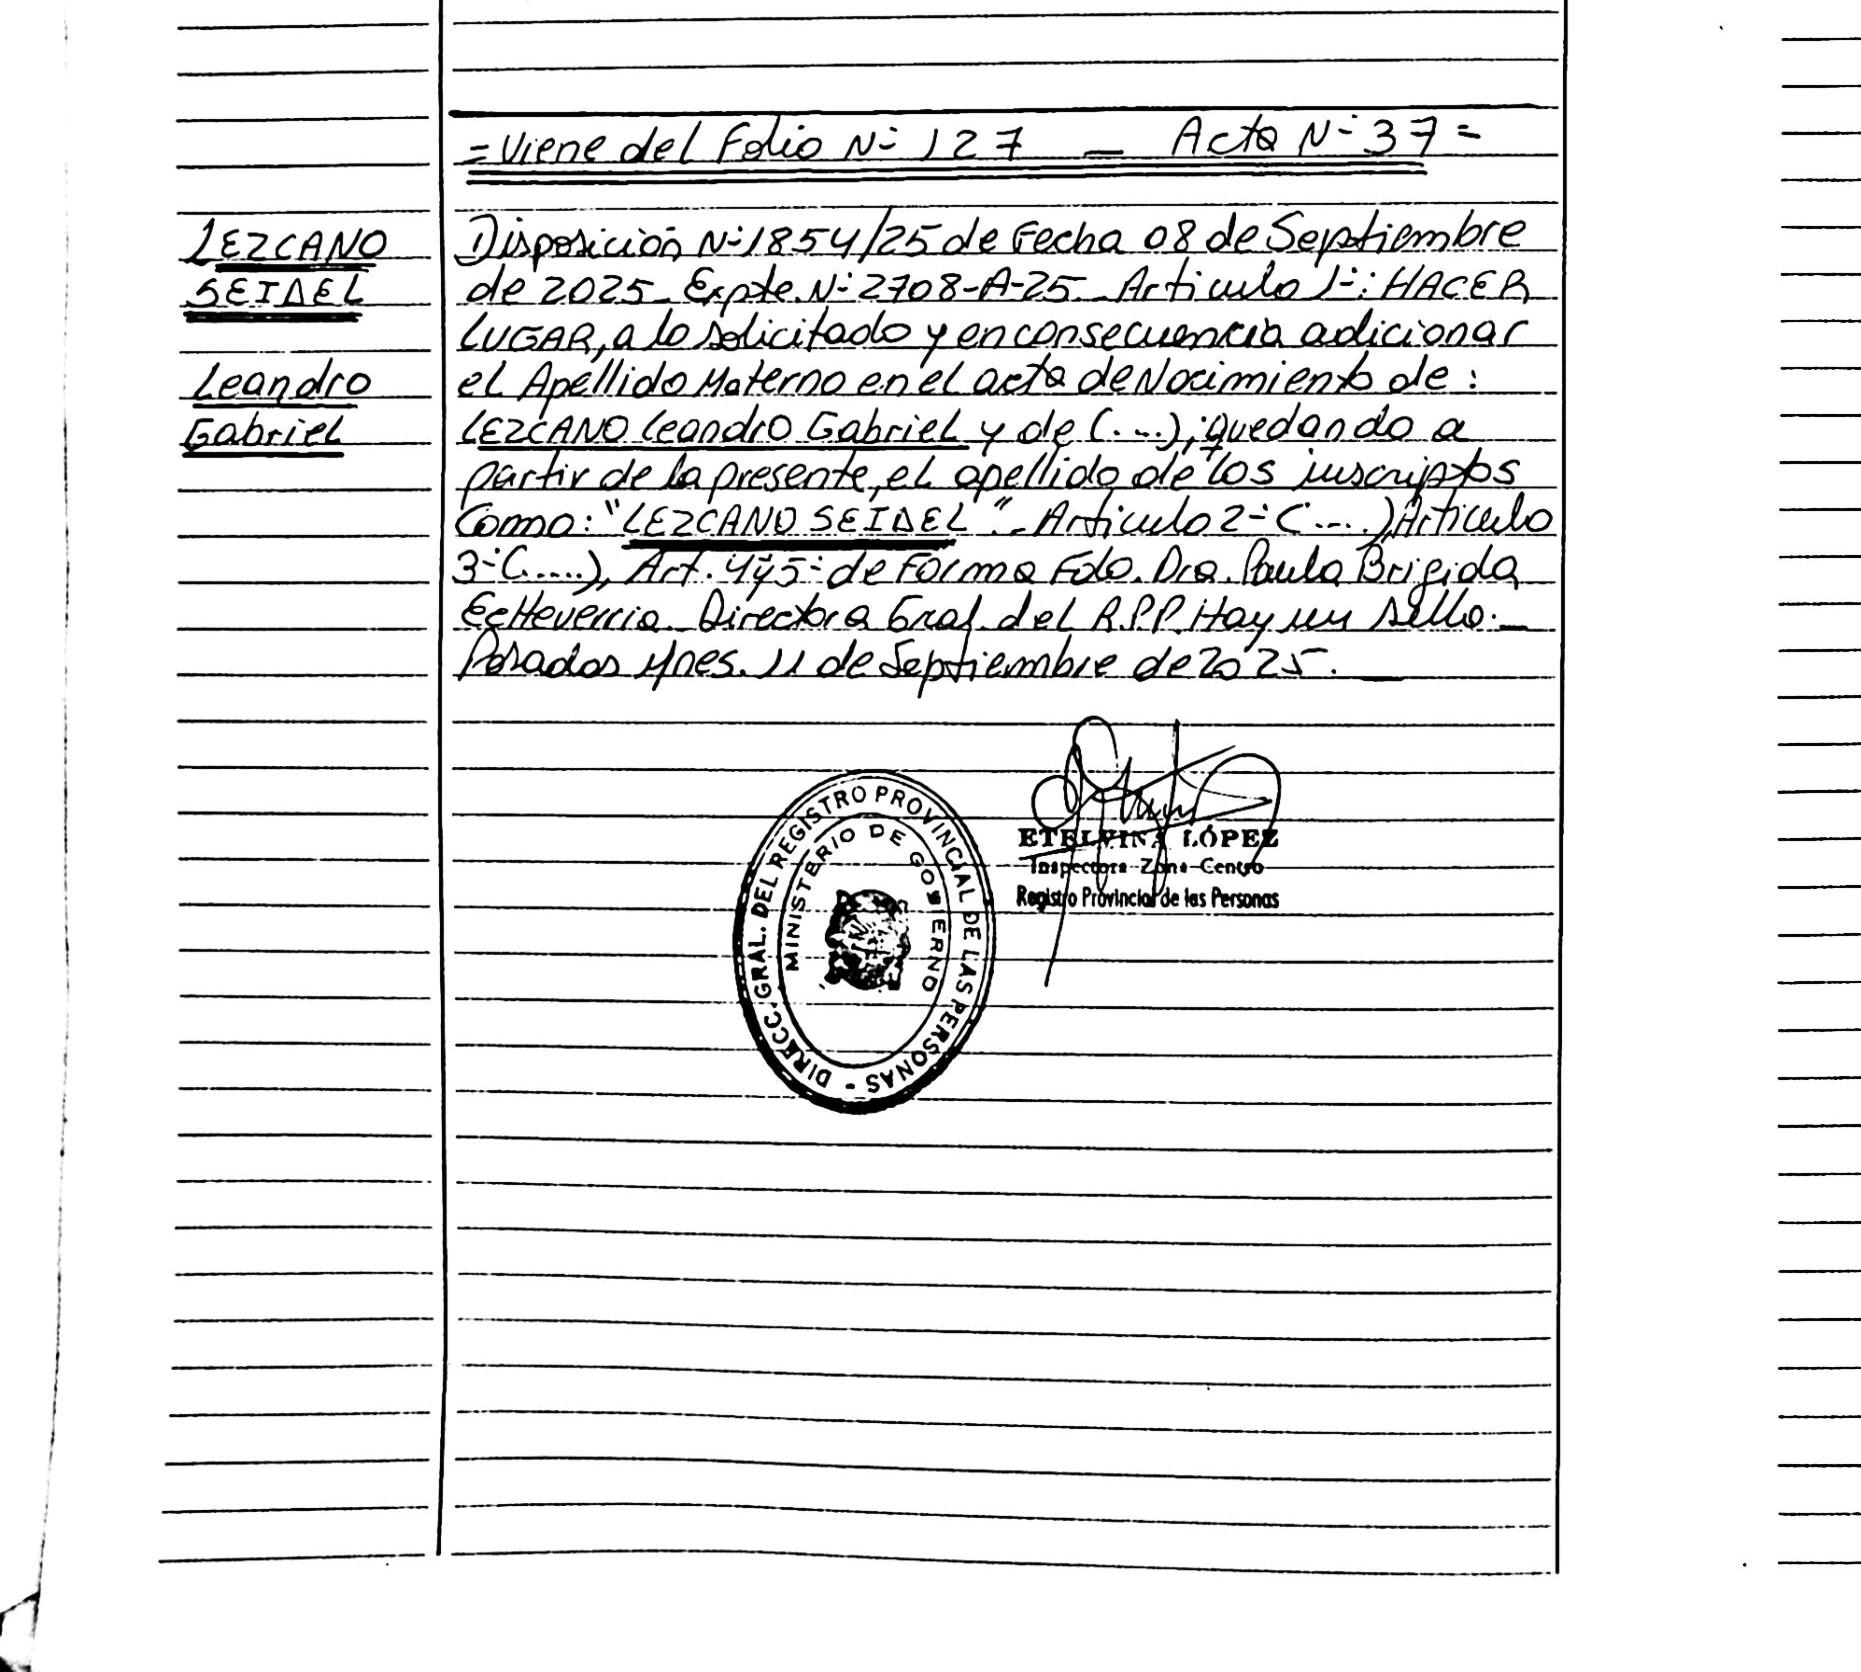 =Viene del Folio Nº 127 — Acta Nº 37=
LEZCANO
SEIDEL
Leandro
Gabriel
Disposición Nº1854/25 de Fecha 08 de Septiembre
de 2025_ Expte. Nº 2708-A-25_ Articulo 1º: HACER
LUGAR, a lo solicitado y en consecuencia adicionar
el Apellido Materno en el acta de Nacimiento de:
LEZCANO Leandro Gabriel y de (....), quedando a
partir de la presente, el apellido de los inscriptos
Como: "LEZCANO SEIDEL"_ Articulo 2º (....) Articulo
3º (.....), Art. 4y5º de Forma Fdo. Dra. Paula Brigida
Echeverria_ Directora Gral. del R.P.P. Hay un Sello._
Posadas Mnes. 11 de Septiembre de 2025._
DIRECC. GRAL. DEL REGISTRO PROVINCIAL DE LAS PERSONAS -
MINISTERIO DE GOBIERNO
ETELVINA LÓPEZ
Inspectora Zona Centro
Registro Provincial de las Personas